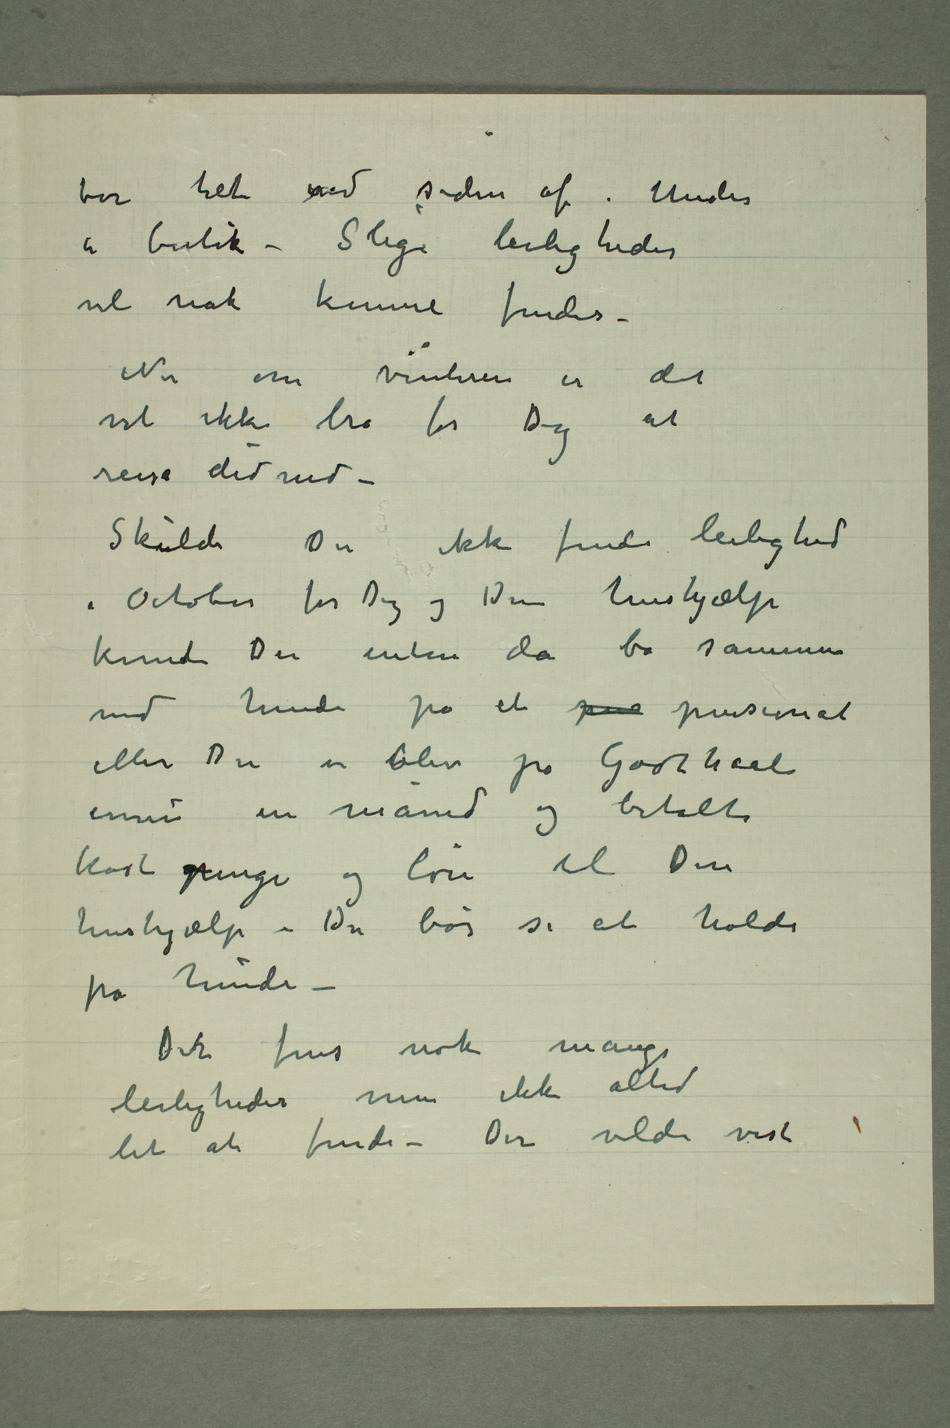 bor tæt ved siden af. Under
er butik – Slige leiligheder
vil nok kunne findes –
Nu om vinteren er det
vel ikke bra for Dig at
reise did ned –
Skulde Du ikke finde leilighed
i October for Dig og Din hushjælp
kunde Du enten da bo sammen
med hende på et pens pensionat
eller Du blev på Godthaab
ennu en måned og betalte
kost penge og løn til Din
hushjælp – Du bør se at holde
på hende –
Det fins nok mange
leiligheder men ikke altid
let at finde – Du vilde vist